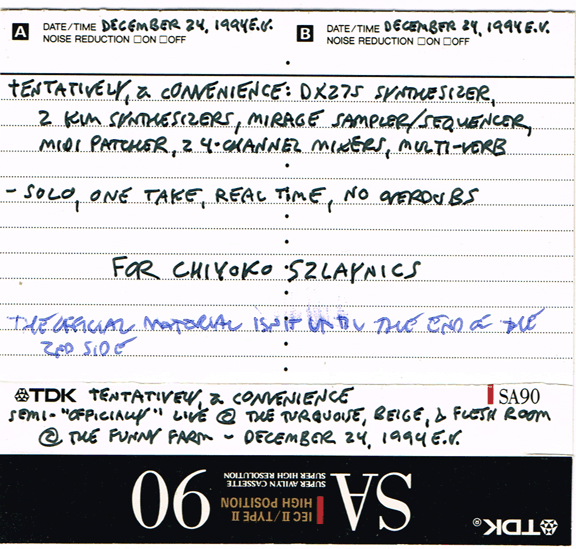 A DATE/TIME DECEMBER 24, 1994 E.V.
NOISE REDUCTION □ON □OFF
B DATE/TIME DECEMBER 24, 1994 E.V.
NOISE REDUCTION □ON □OFF
tENTATIVELY, a CONVENIENCE: DX27S SYNTHESIZER,
2 KIM SYNTHESIZERS, MIRAGE SAMPLER/SEQUENCER,
MIDI PATCHER, 2 4-CHANNEL MIXERS, MULTI-VERB
- SOLO, ONE TAKE, REAL TIME, NO OVERDUBS
FOR CHIYOKO SZLAVNICS
THE OFFICIAL MATERIAL ISN'T UNTIL THE END OF THE
2ND SIDE
TDK tENTATIVELY, a CONVENIENCE SA90
SEMI-"OFFICIALLY" LIVE @ THE TURQUOISE, BEIGE, & FLESH ROOM
@ THE FUNNY FARM - DECEMBER 24, 1994 E.V.
TDK®
SA
IEC II/TYPE II
HIGH POSITION
SUPER AVILYN CASSETTE
SUPER HIGH RESOLUTION
90